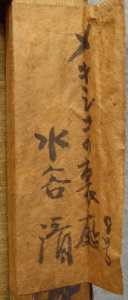 メキシコの裏庭
水谷清